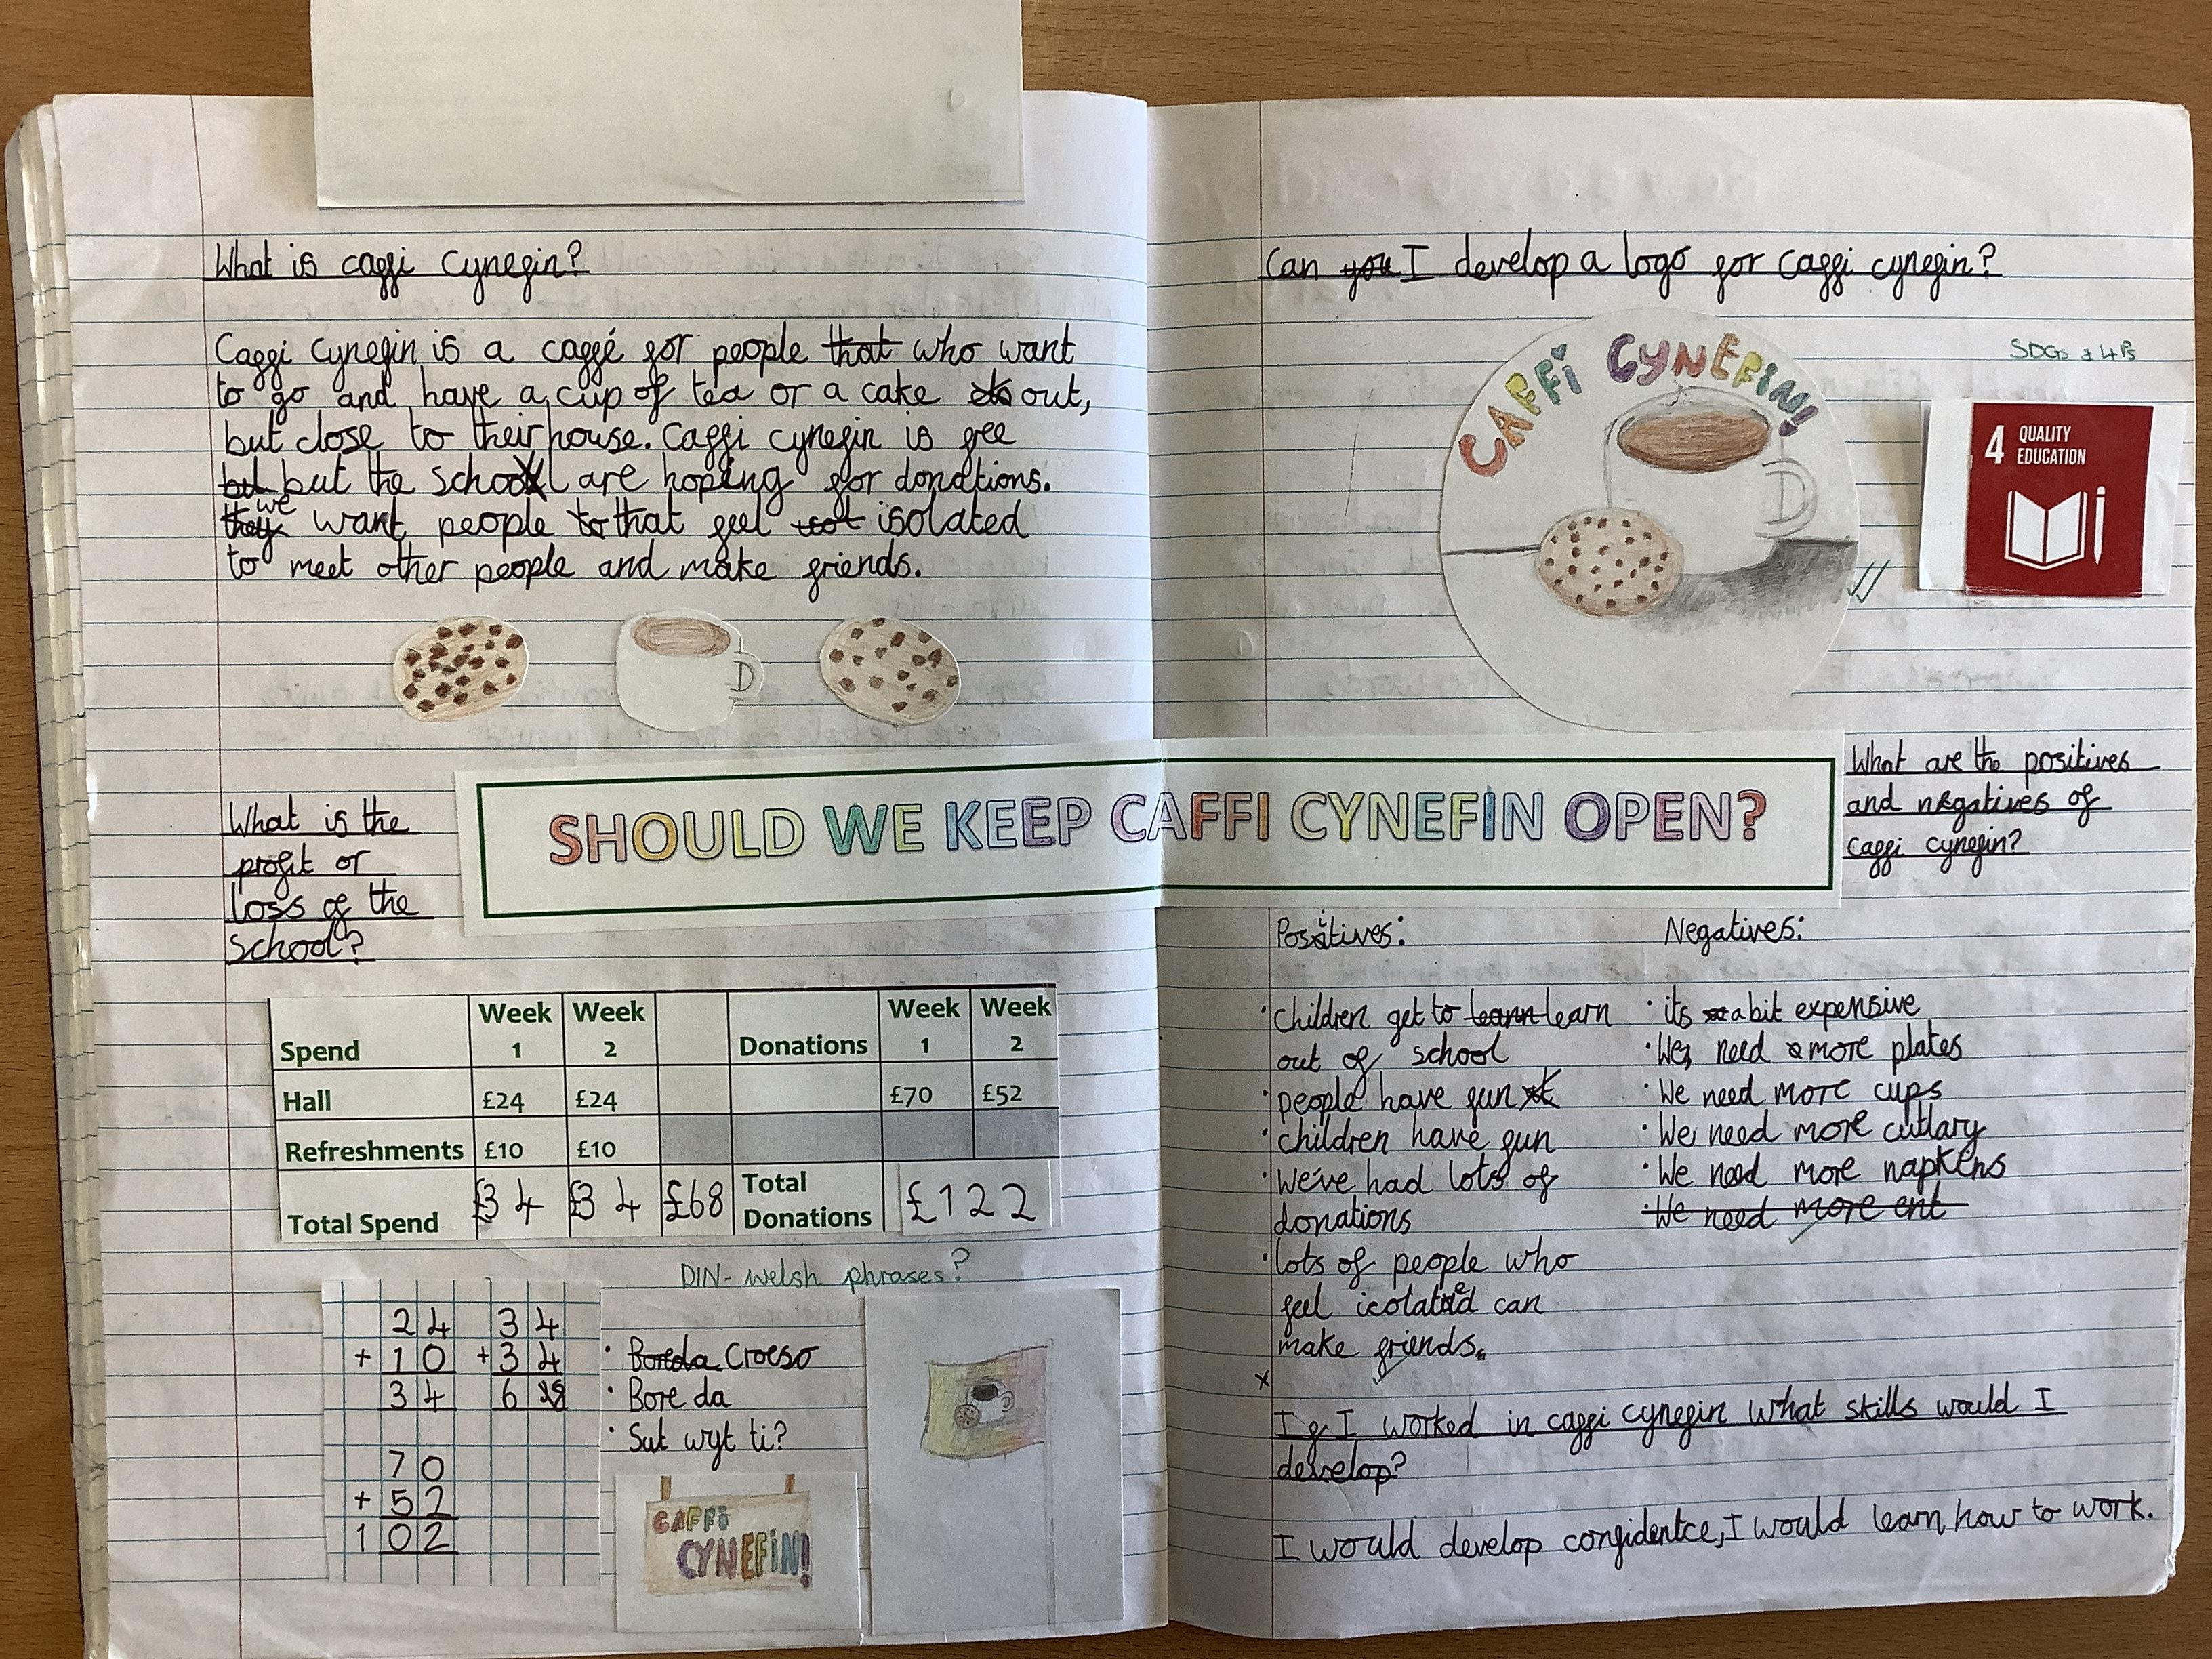 What is caffi cynefin?
Caffi cynefin is a caffé for people that who want
to go and have a cup of tea or a cake out,
but close to their house. Caffi cynefin is free
but but the school are hoping for donations.
they we want people to that feel isolated
to meet other people and make friends.
Can you I develop a logo for caffi cynefin?
CAFFi CYNEFiN!
SDGs & 4Ps
4 QUALITY
EDUCATION
SHOULD WE KEEP CAFFI CYNEFIN OPEN?
What is the
profit or
loss of the
school?
Spend Week 1 Week 2 Donations Week 1 Week 2
Hall £24 £24 £70 £52
Refreshments £10 £10
Total Spend £34 £34 £68 Total Donations £122
24 34
+10 +34
34 68
70
+52
102
DIN- welsh phrases?
· Boreda Croeso
· Bore da
· Sut wyt ti?
CAFFi
CYNEFiN!
What are the positives
and negatives of
caffi cynefin?
Positives:
· children get to leann learn
out of school
· people have fun
· children have fun
· We've had lots of
donations
· lots of people who
feel icolated can
make friends.
Negatives:
· its a bit expensive
· We need more plates
· We need more cups
· We need more cutlary
· We need more napkens
· We need more ent
x
If I worked in caffi cynefin what skills would I
develop?
I would develop confidentce, I would learn how to work.